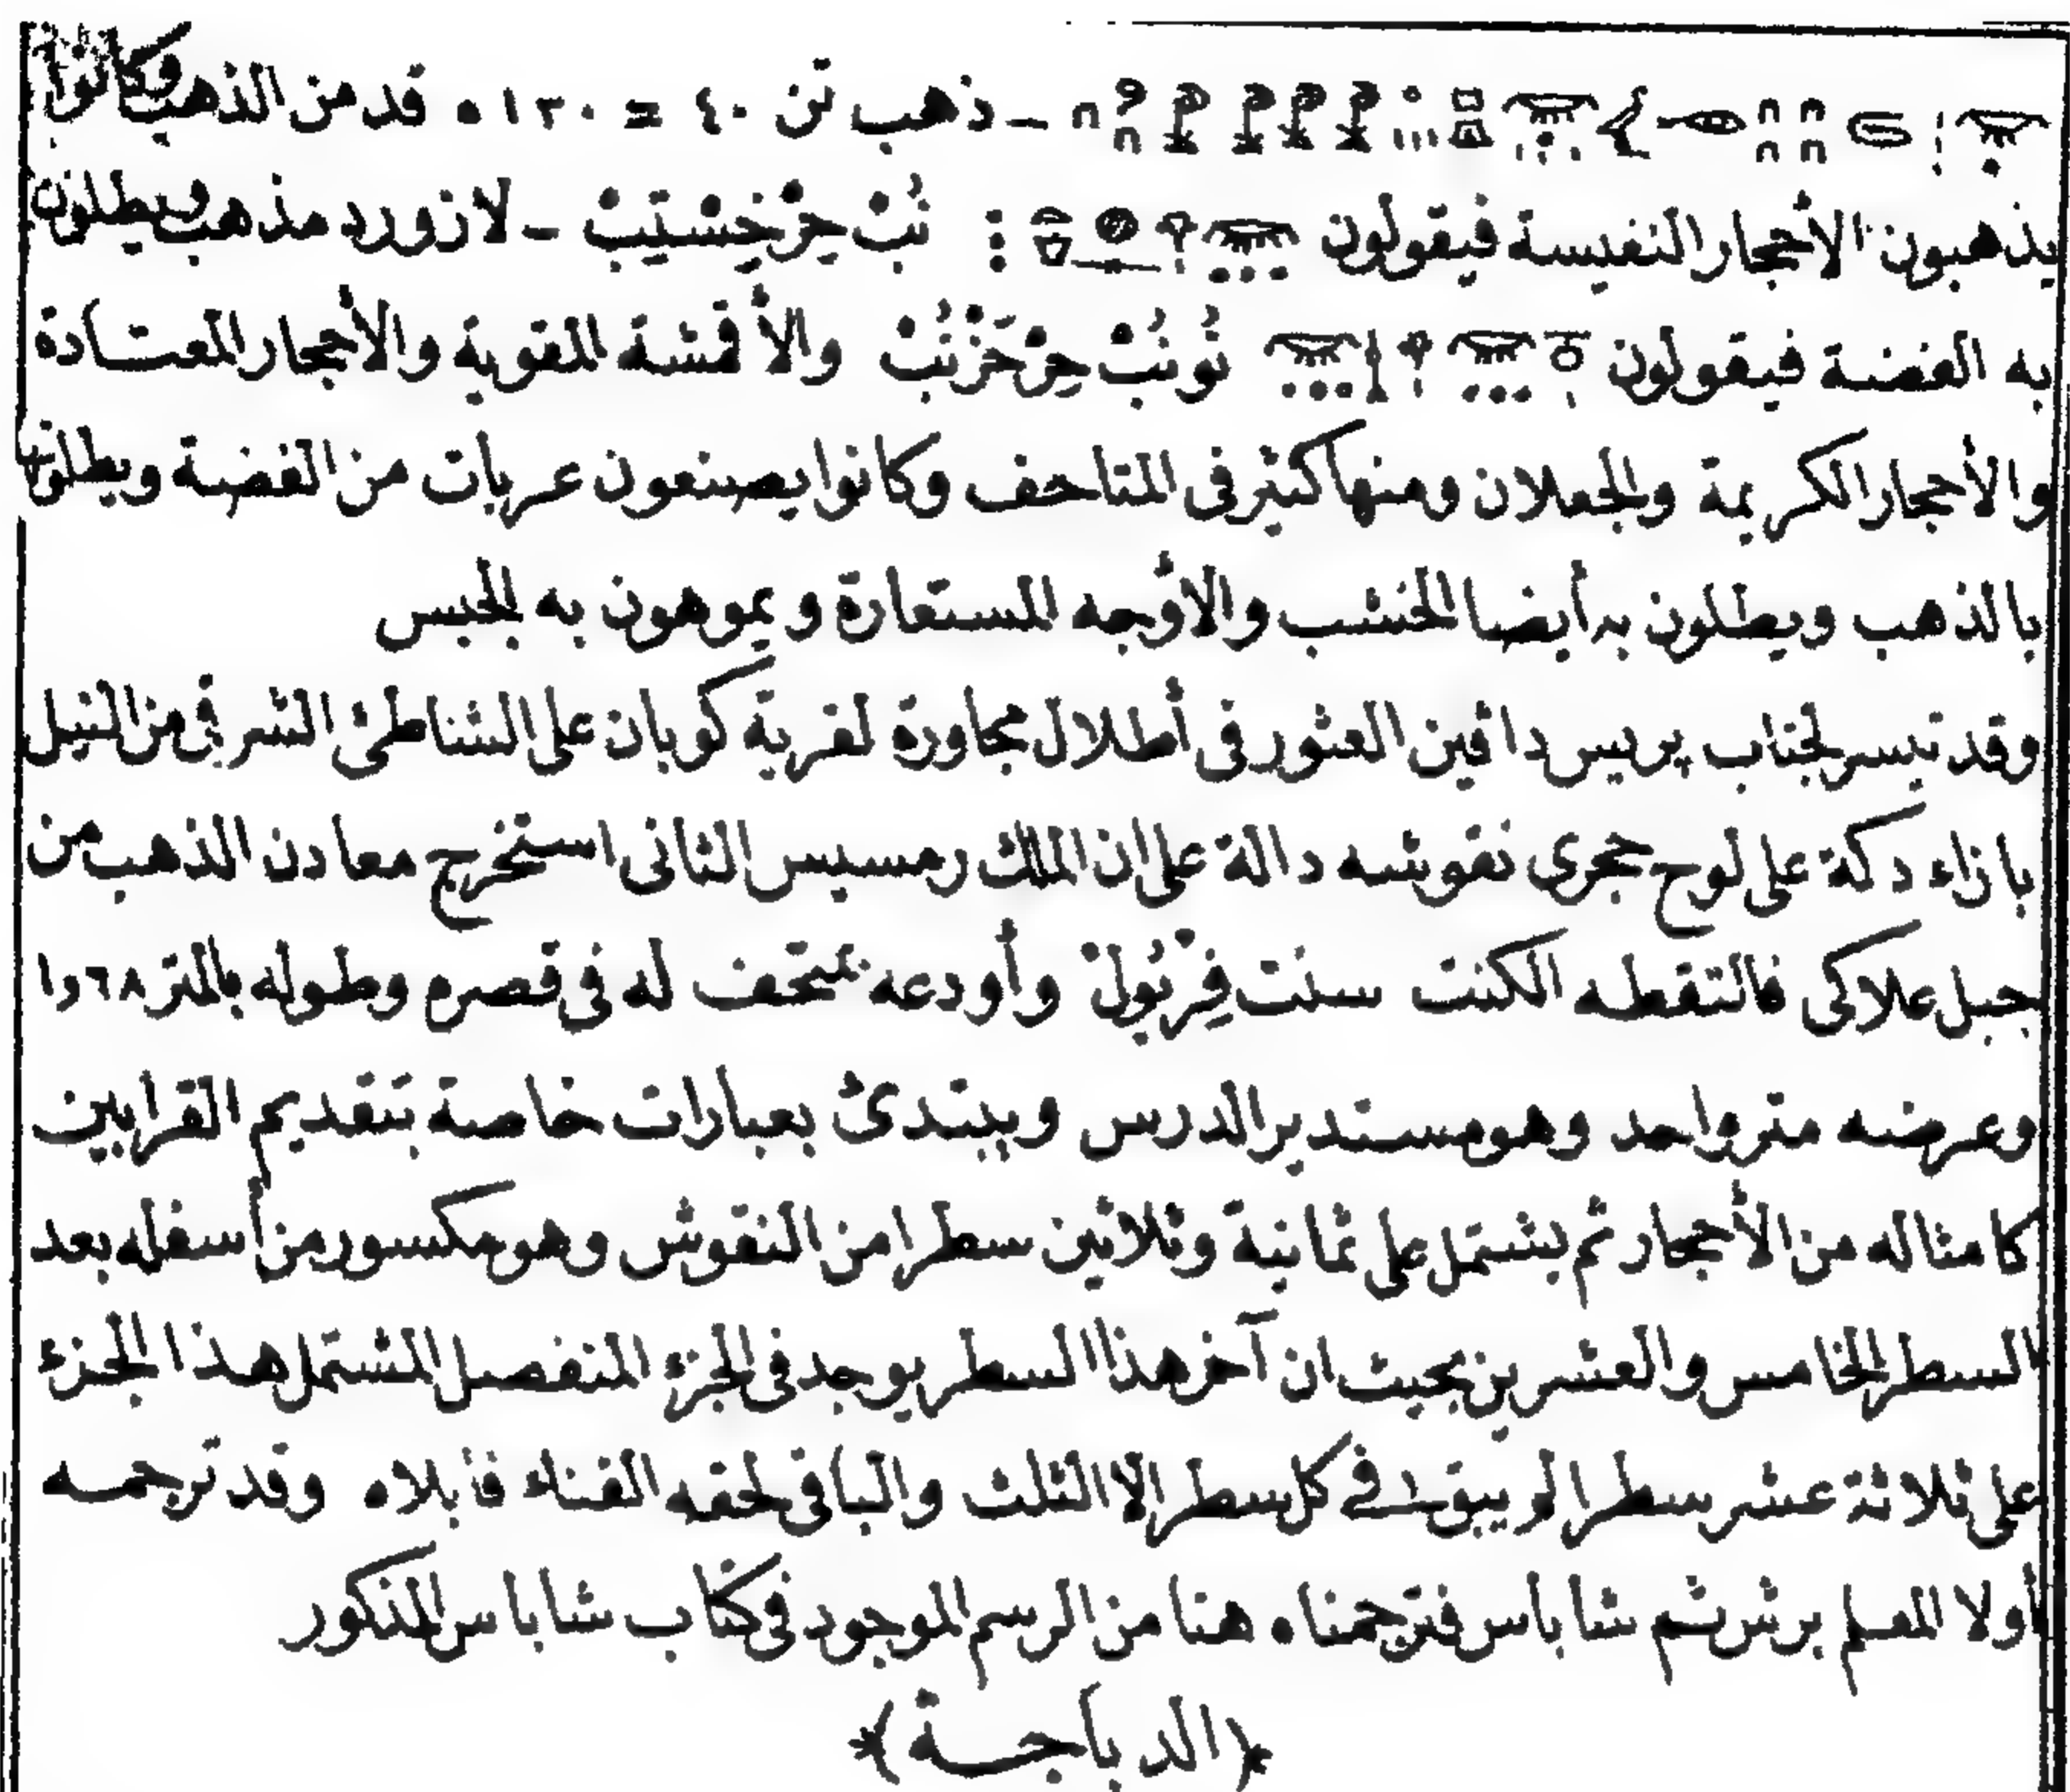 ـ ذهب تن ٤٠ = ٠ ١٣٠ قد من الذهب وكانوا
يذهبون الأحجار النفيسة فيقولون نُبْ حِرْ خِسْتِبْ ـ لازورد مذهب ويطلون
به الفضة فيقولون نُونُبْ حِرْحَزْنُبْ والأقمشة المقوية والأحجار المعتادة
والأحجار الكريمة والجعلان ومنها كثير فى المتاحف وكانوا يصنعون عربات من الفضة ويطلونها
بالذهب ويطلون به أيضا الخشب والأوجه المستعارة ويموهون به الجبس
وقد تيسر لجناب پريس دافين العثور فى أطلال مجاورة لقرية كوبان على الشاطئ الشرقى من النيل
بازاء دكة على لوح حجرى نقوشه دالة على ان الملك رمسيس الثانى استخرج معادن الذهب من
جبل علاكى فالتقطه الكنت سنت فِرْيُولْ وأودعه بمتحف له فى قصره وطوله بالمتر ٦٨ر١
وعرضه متر واحد وهو مستدير الدرس ويبتدئ بعبارات خاصة بتقديم القرابين
كامثاله من الأحجار ثم يشتمل على ثمانية وثلاثين سطرا من النقوش وهو مكسور من أسفله بعد
السطر الخامس والعشرين بحيث ان آخر هذا السطر يوجد فى الجزء المنفصل المشتمل هذا الجزء
على ثلاثة عشر سطرا لم يبق فى كل سطر الا الثلث والباقى لحقه الفناء فأبلاه وقد ترجمه
أولا المعلم برش ثم شاباس فترجمناه هنا من الرسم الموجود فى كتاب شاباس المذكور
﴿الدباجة﴾